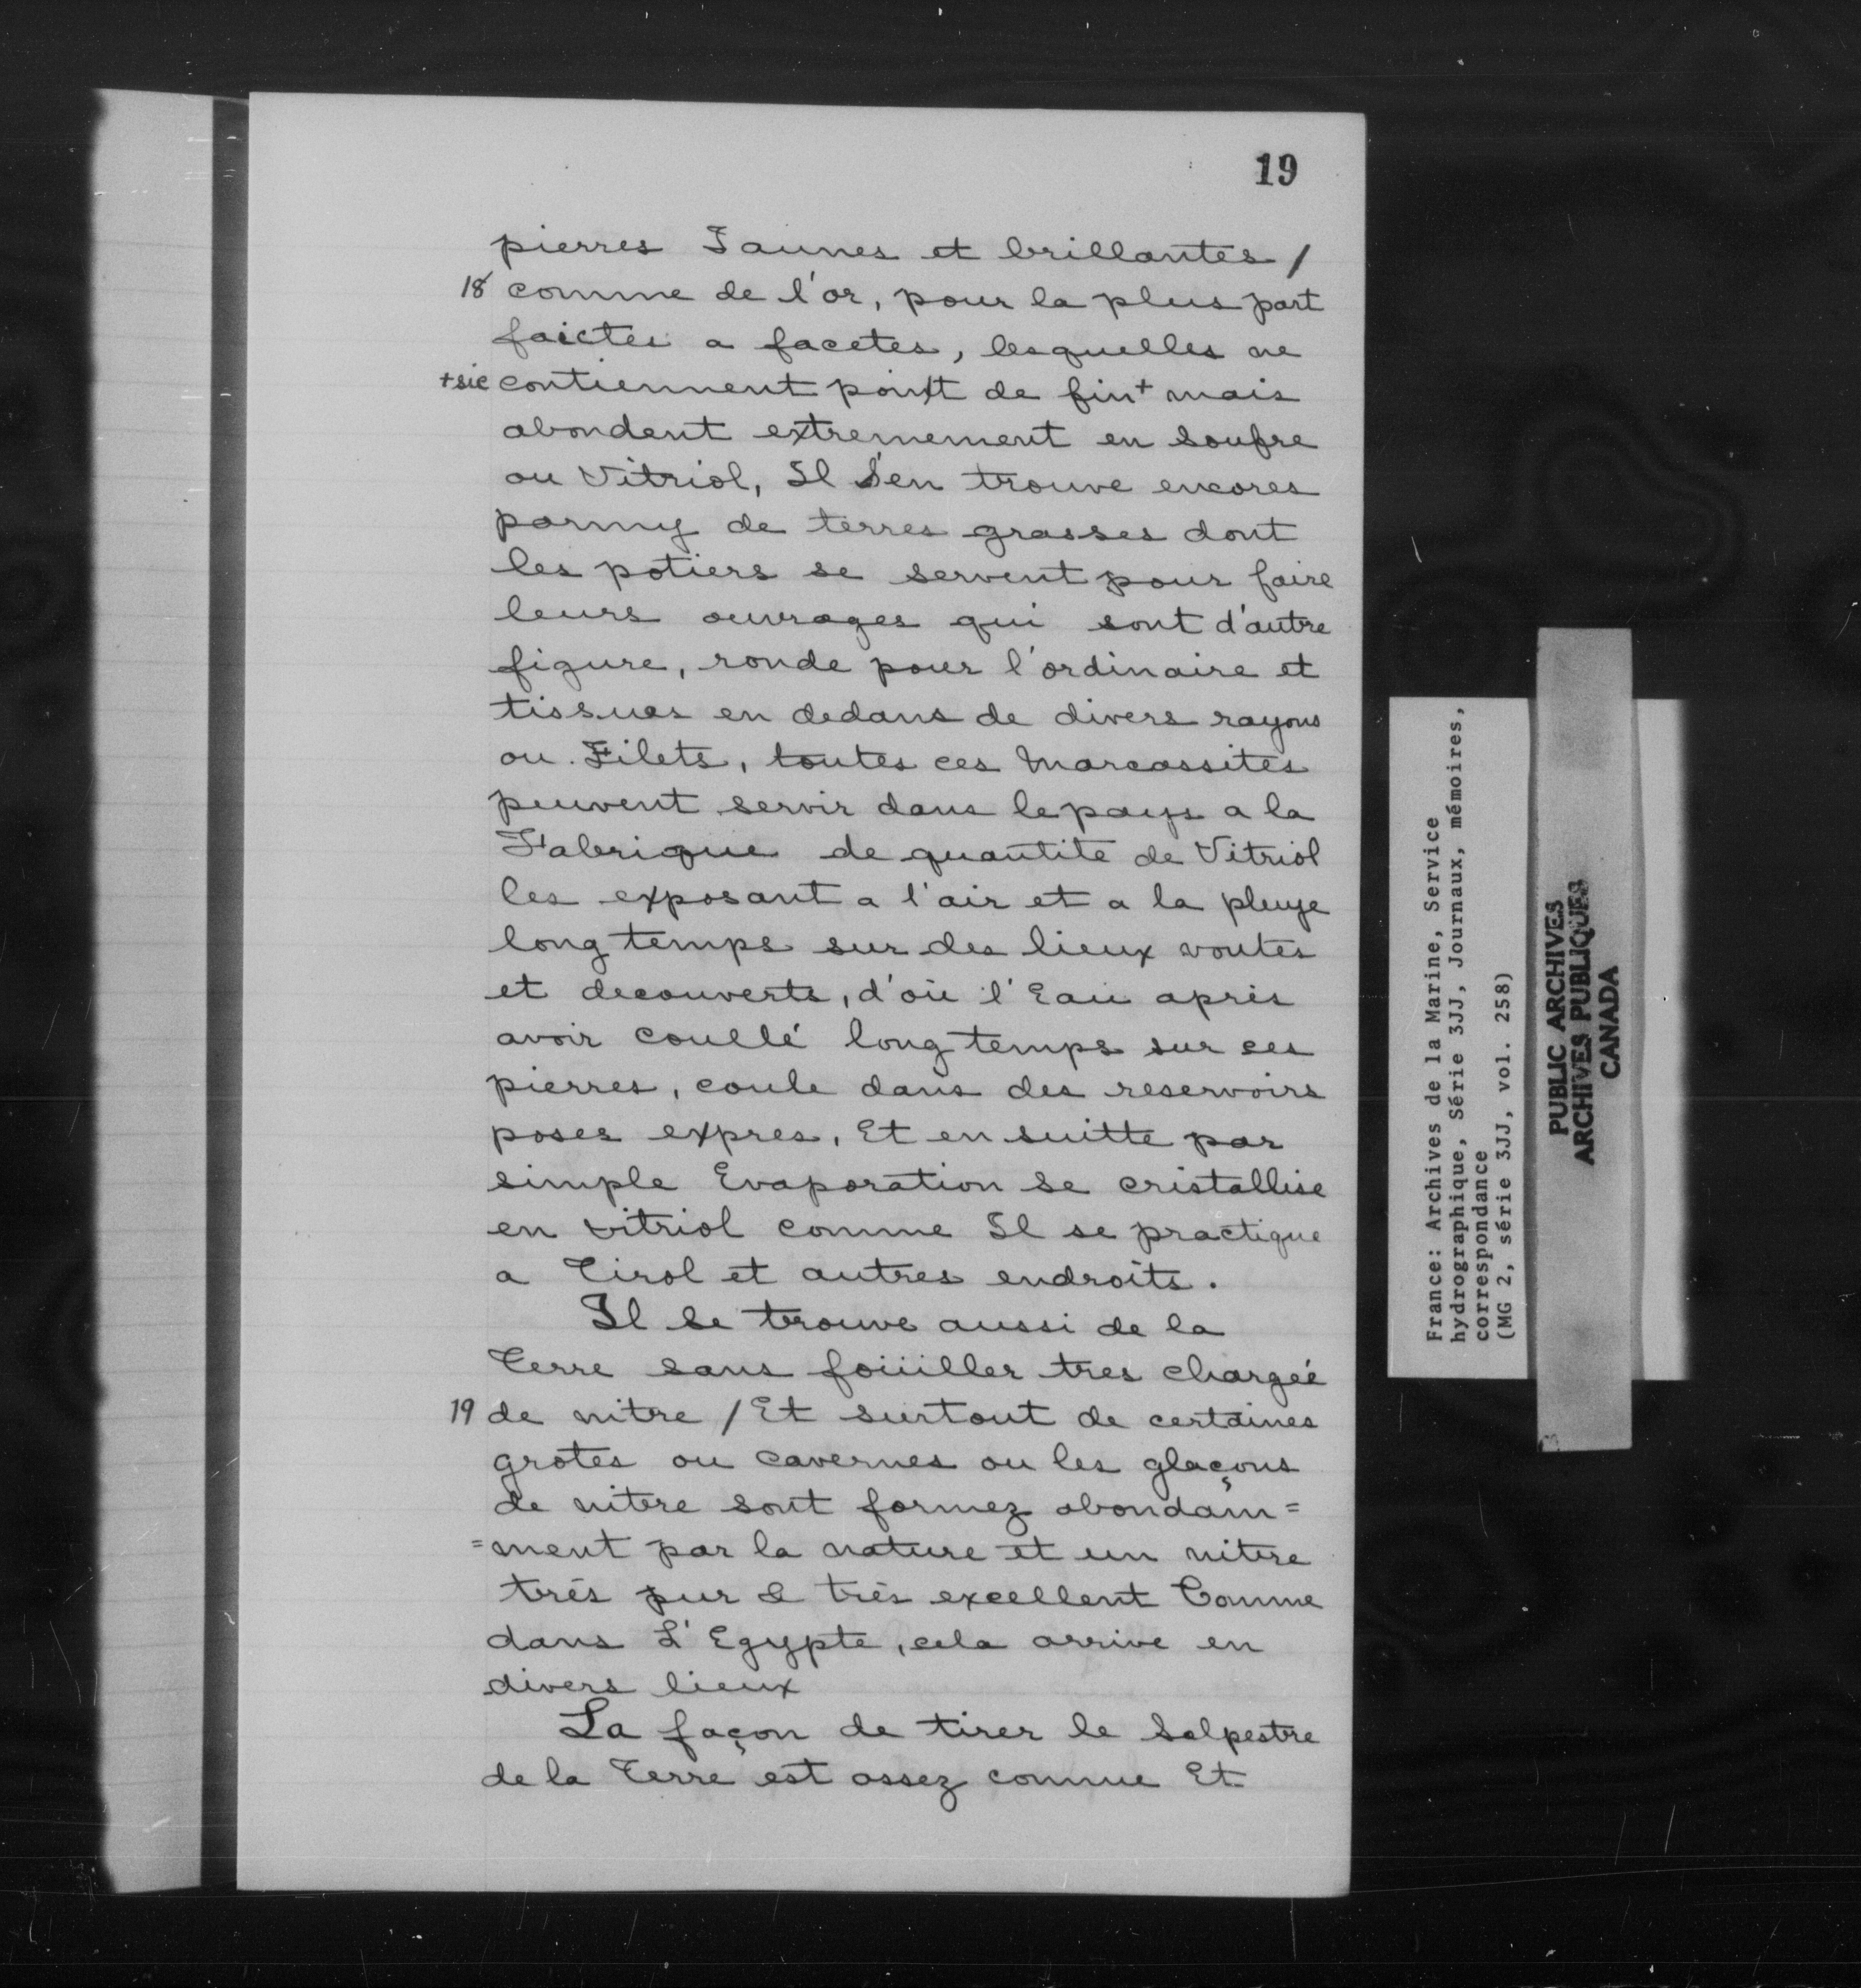 19
pierres Jaunes et brillantes /
18 comme de l'or, pour la plus part
faictes a facetes, lesquelles ne
+sic contiennent point de fin+ mais
abondent extremement en soufre
ou Vitriol, Il s'en trouve encores
parmy de terres grasses dont
les potiers se servent pour faire
leurs ouvrages qui sont d'autre
figure, ronde pour l'ordinaire et
tissues en dedans de divers rayons
ou Filets, toutes ces Marcassites
peuvent servir dans le pays a la
Fabrique de quantité de Vitriol
les exposant a l'air et a la pluye
long temps sur des lieux voutes
et decouverts, d'où l'Eau après
avoir coullé long temps sur ces
pierres, coule dans des reservoirs
poses expres, Et en suitte par
simple Evaporation se cristallise
en vitriol comme Il se practique
a Tirol et autres endroits.
Il se trouve aussi de la
Terre sans foüiller tres chargéé
19 de nitre / Et surtout de certaines
grotes ou cavernes ou les glaçons
de nitre sont formez abondam=
=ment par la nature et un nitre
trés pur & très excellent Comme
dans L'Egypte, cela arrive en
divers lieux
La façon de tirer le Salpestre
de la Terre est assez connue Et
France: Archives de la Marine, Service
hydrographique, Série 3JJ, Journaux, mémoires,
correspondance
(MG 2, série 3JJ, vol. 258)
PUBLIC ARCHIVES
ARCHIVES PUBLIQUES
CANADA